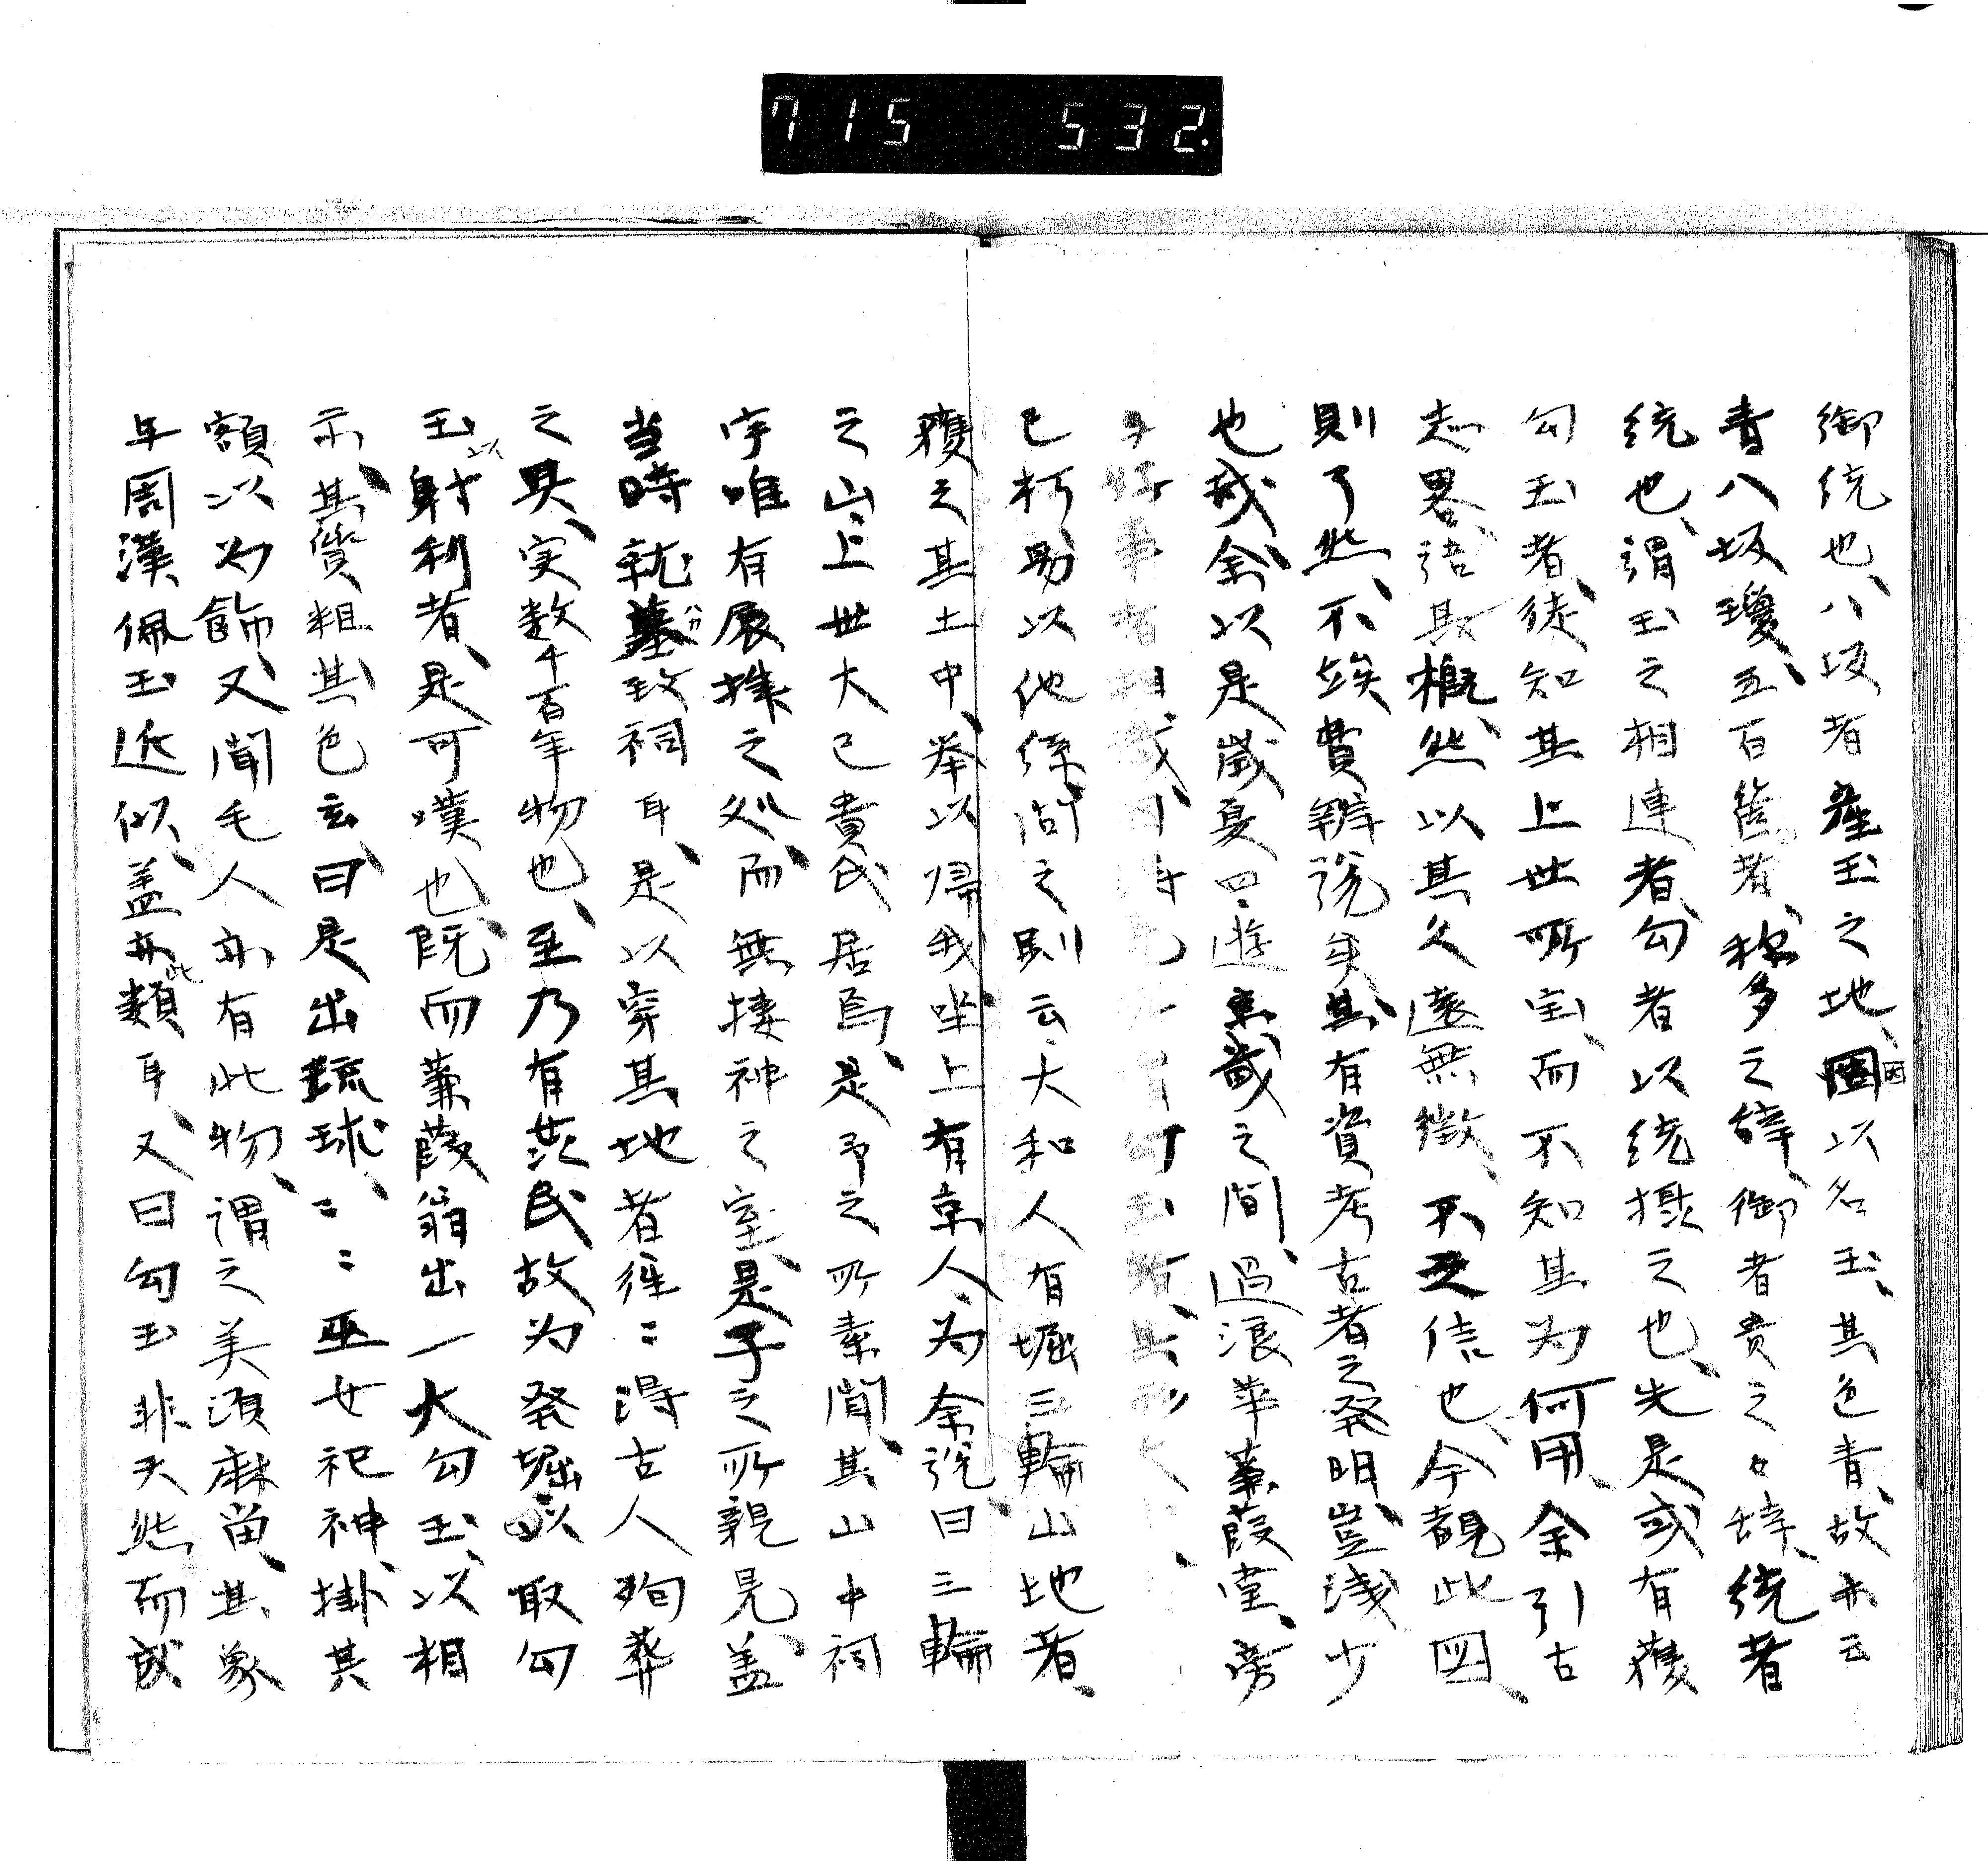 715 532.
御統也、八坂者産玉之地、固因以名玉、其色青、故亦云
青八坂瓊、五百箇者、称多之辞、御者貴之々辞、統者
統也、謂玉之相連者、勾者以統摂之也、先是或有獲
勾玉者、徒知其上世所宝、而不知其為何用、余引古
志畧、語其概、然以其久遠無徴、不之信也、今観此図、
則了然、不竢費辨説矣、其有資考古者之発明、豈浅少
也哉、余以是歳夏四、遊東畿之間、過浪華蒹葭堂、旁
好事者相
已朽、助以他係、問之、則云、大和人有堀三輪山地者、
獲之其土中、挙以帰我、坐上有京人、為余説曰、三輪
之山、上世大己貴氏居焉、是予之所素聞、其山中祠
宇唯有展拝之処、而無捿神之室、是予之所親見、盖
当時就墓致祠耳、是以穿其地者徃〻得古人殉葬
之具、実数千百年物也、至乃有荗民故為発堀以取勾
玉以射利者、是可嘆也、既而蒹葭翁出一大勾玉、以相
示、其質粗、其色玄、曰是出琉球、〻〻巫女祀神、掛其
額以為飾、又聞毛人亦有此物、謂之美須麻留、其象
年周漢佩玉近似、盖亦此類耳、又曰勾玉非天然而成